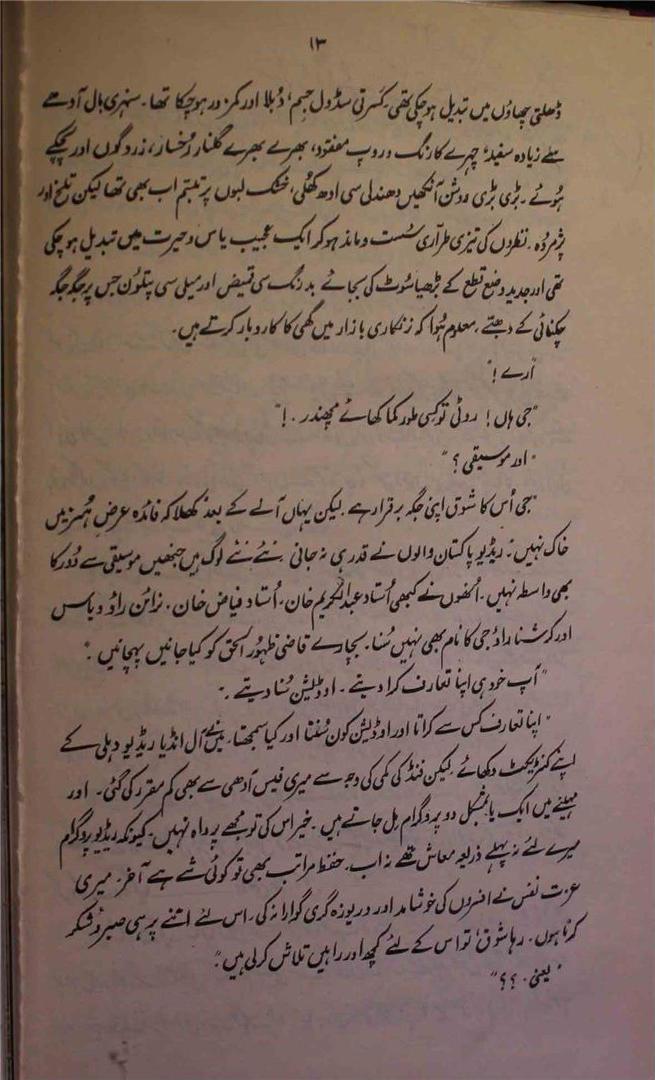 ۱۳
ڈھلتی چھاؤں میں تبدیل ہوچکی تھی۔ کسرتی سڈول جسم، دُبلا اور کمزور ہوچکا تھا۔ سنہری بال آدھے
سے زیادہ سفید، چہرے کا رنگ و روپ مفقود، بھرے بھرے گلنار رُخسار، زرد گوں اور پچکے
ہُوئے۔ بڑی بڑی روشن آنکھیں دھندلی سی ادھ کھُلی، خشک لبوں پر تبسّم اب بھی تھا لیکن تلخ اور
پژمردہ۔ نظروں کی تیزی طرآری سُست و ماند ہوکر ایک عجیب یاس و حیرت میں تبدیل ہوچکی
تھی اور جدید وضع قطع کے بڑھیا سُوٹ کی بجائے بد رنگ سی قمیض اور میلی سی پتلون جس پر جگہ جگہ
چکنائی کے دھبّے۔ معلوم ہُوا کہ زنکاری بازار میں گھی کا کاروبار کرتے ہیں۔
"ارے!"
"جی ہاں! روٹی تو کسی طور کما کھائے مچھندر۔!"
"اور موسیقی؟"
"جی اُس کا شوق اپنی جگہ برقرار ہے۔ لیکن یہاں آنے کے بعد کھُلا کہ فائدہ عرضِ ہُنر میں
خاک نہیں۔ ریڈیو پاکستان والوں نے قدر ہی نہ جانی۔ نئے نئے لوگ ہیں جنھیں موسیقی سے دُور کا
بھی واسطہ نہیں۔ اُنھوں نے کبھی اُستاد عبدالکریم خان۔ اُستاد فیاض خان۔ نرائن راؤ ویاس
اور کرشنا راؤ جی کا نام بھی نہیں سُنا۔ بیچارے قاضی ظہور الحق کو کیا جانیں پہچانیں۔"
"آپ خود ہی اپنا تعارف کرا دیتے۔ اوڈیشن سُنا دیتے۔"
"اپنا تعارف کس سے کراتا اور اوڈیشن کون سُنتا اور کیا سمجھتا۔ مَیں نے آل انڈیا ریڈیو دہلی کے
اپنے کنٹریکٹ دکھائے لیکن فنڈ کی کمی کی وجہ سے میری فیس آدھی سے بھی کم مقرر کی گئی۔ اور
مہینے میں ایک یا بمشکل دو پروگرام مل جاتے ہیں۔ خیر اس کی تو مجھے پرواہ نہیں۔ کیونکہ ریڈیو پروگرام
میرے لئے نہ پہلے ذریعہ معاش تھے نہ اب۔ حفظ مراتب بھی تو کوئی شے ہے آخر۔ میری
عزت نفس نے افسروں کی خوشامد اور دریوزہ گری گوارا نہ کی۔ اس لئے اتنے پر ہی صبر و شکر
کرتا ہوں۔ رہا شوق، تو اس کے لئے کچھ اور راہیں تلاش کرلی ہیں۔"
"یعنی۔؟؟"